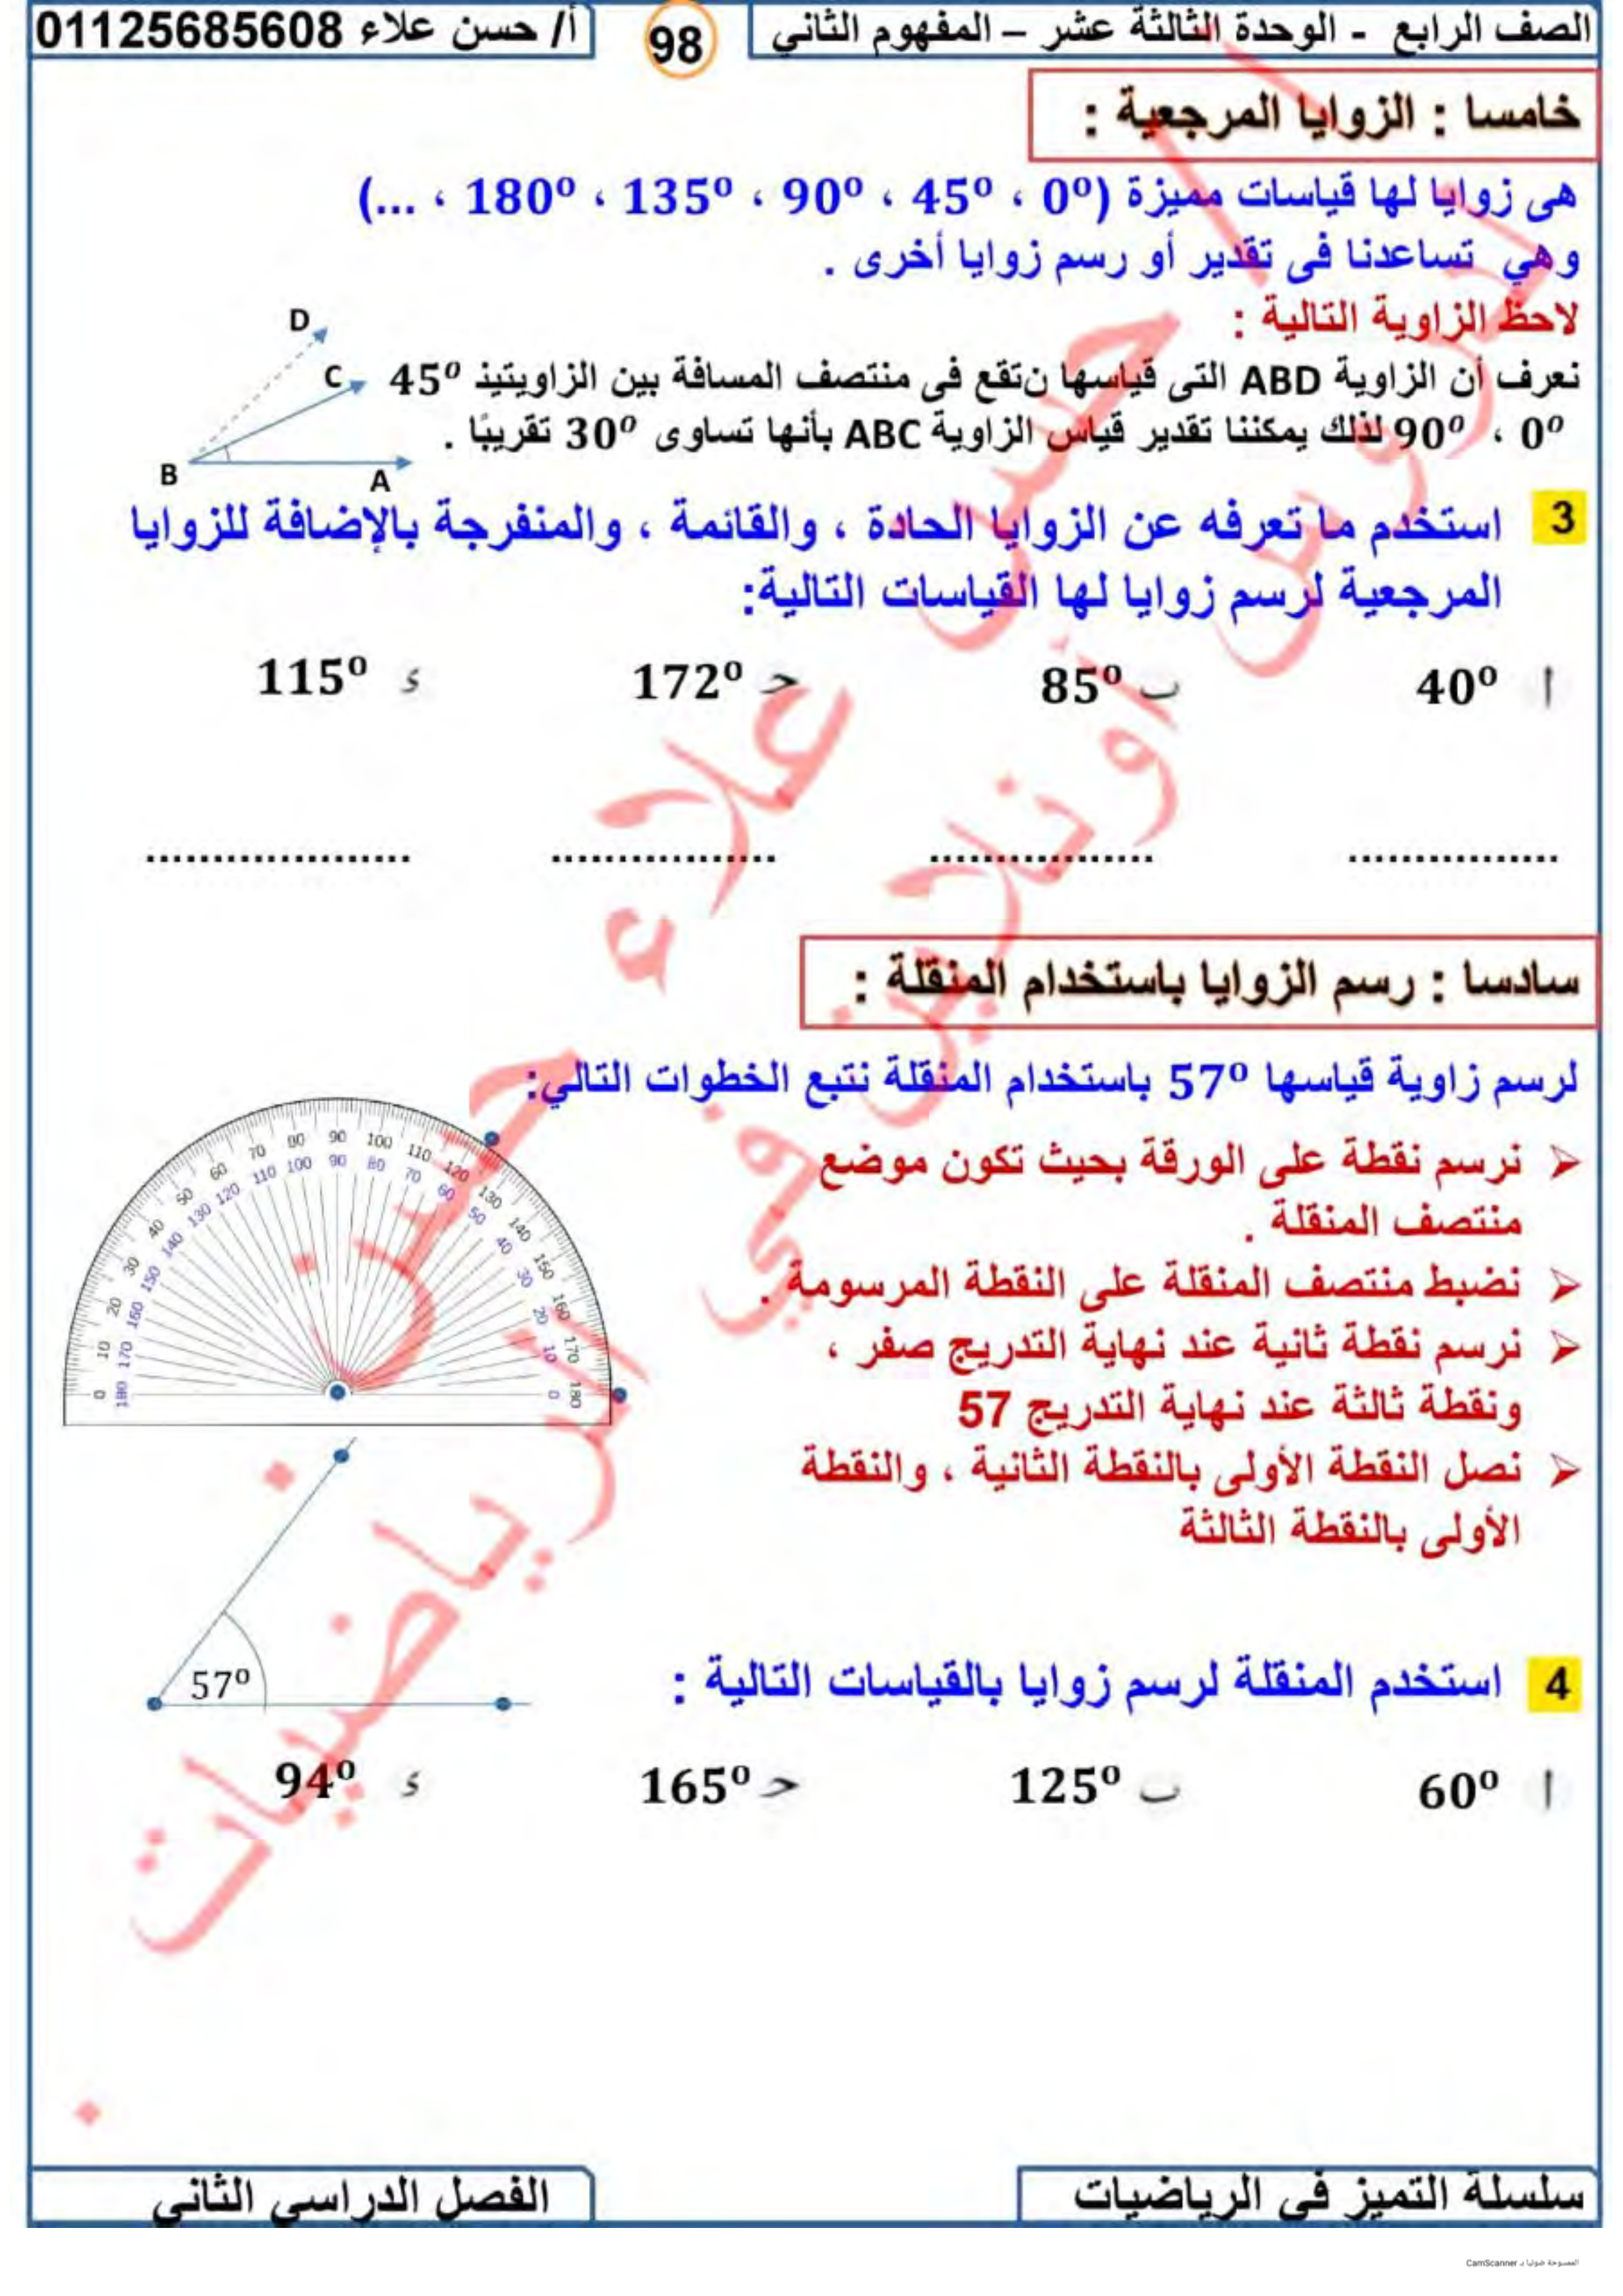 الصف الرابع - الوحدة الثالثة عشر – المفهوم الثاني
98
أ/ حسن علاء 01125685608
خامسا : الزوايا المرجعية :
هى زوايا لها قياسات مميزة (0º ، 45º ، 90º ، 135º ، 180º ، ...)
وهي تساعدنا فى تقدير أو رسم زوايا أخرى .
لاحظ الزاوية التالية :
نعرف أن الزاوية ABD التى قياسها ن تقع فى منتصف المسافة بين الزاويتينذ 45º
0º ، 90º لذلك يمكننا تقدير قياس الزاوية ABC بأنها تساوى 30º تقريبًا .
D
C
B
A
3 استخدم ما تعرفه عن الزوايا الحادة ، والقائمة ، والمنفرجة بالإضافة للزوايا
المرجعية لرسم زوايا لها القياسات التالية:
أ 40º ب 85º حـ 172º ء 115º
................ ................. ................. ....................
سادسا : رسم الزوايا باستخدام المنقلة :
لرسم زاوية قياسها 57º باستخدام المنقلة نتبع الخطوات التالي:
نرسم نقطة على الورقة بحيث تكون موضع
منتصف المنقلة .
نضبط منتصف المنقلة على النقطة المرسومة .
نرسم نقطة ثانية عند نهاية التدريج صفر ،
ونقطة ثالثة عند نهاية التدريج 57
نصل النقطة الأولى بالنقطة الثانية ، والنقطة
الأولى بالنقطة الثالثة
0 10 20 30 40 50 60 70 80 90 100 110 120 130 140 150 160 170 180
180 170 160 150 140 130 120 110 100 90 80 70 60 50 40 30 20 10 0
57º
4 استخدم المنقلة لرسم زوايا بالقياسات التالية :
أ 60º ب 125º حـ 165º ء 94º
أ / حسن علاء حسن
دروس أونلاين في الرياضيات
سلسلة التميز فى الرياضيات
الفصل الدراسي الثاني
الممسوحة ضوئيا بـ CamScanner